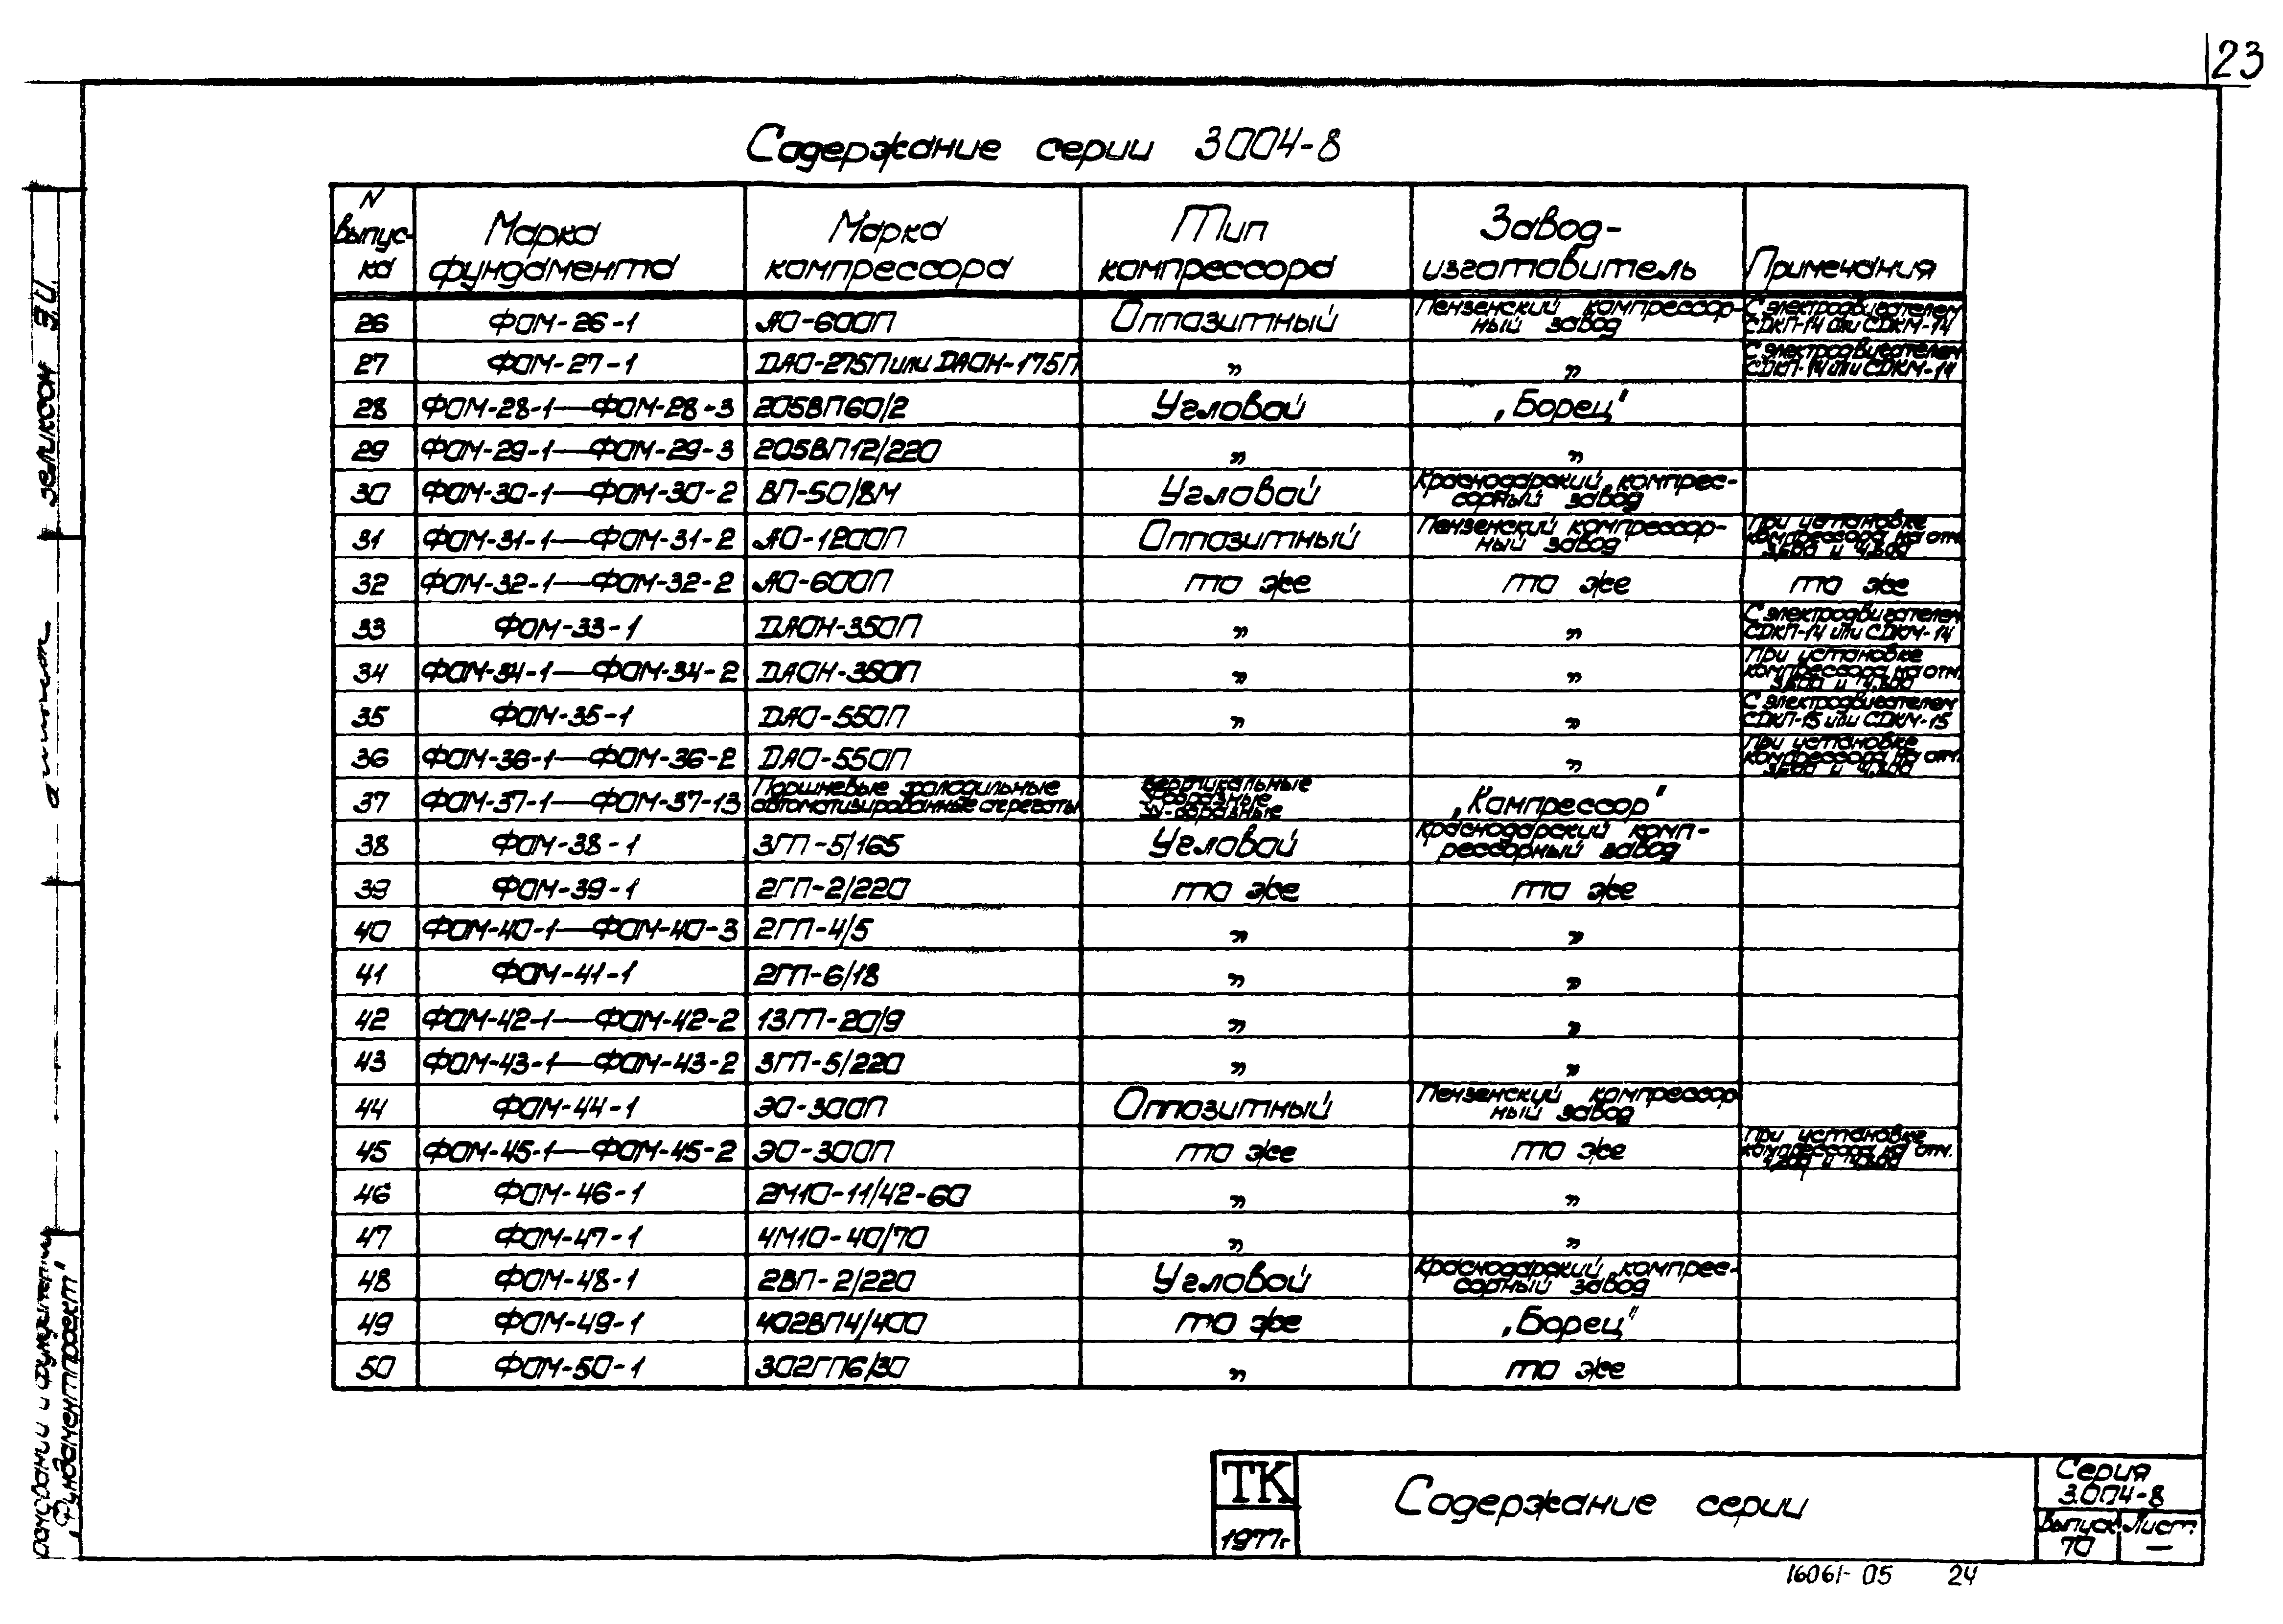 23
Содержание серии 3.004-8
N выпус-ка | Марка фундамента | Марка компрессора | Тип компрессора | Завод-изготовитель | Примечания
26 | ФОМ-26-1 | АО-600П | Оппозитный | Пензенский компрессор-ный завод | С электродвигателем СДКП-14 или СДКМ-14
27 | ФОМ-27-1 | ДАО-275П или ДАОН-175П | „ | „ | С электродвигателем СДКП-14 или СДКМ-14
28 | ФОМ-28-1—ФОМ-28-3 | 205ВП60/2 | Угловой | „Борец"
29 | ФОМ-29-1—ФОМ-29-3 | 205ВП12/220 | „ | „
30 | ФОМ-30-1—ФОМ-30-2 | ВП-50/8М | Угловой | Краснодарский компрес-сорный завод
31 | ФОМ-31-1—ФОМ-31-2 | АО-1200П | Оппозитный | Пензенский компрессор-ный завод | При установке компрессора на отм. 3,600 и 4,800
32 | ФОМ-32-1—ФОМ-32-2 | АО-600П | то же | то же | то же
33 | ФОМ-33-1 | ДАОН-350П | „ | „ | С электродвигателем СДКП-14 или СДКМ-14
34 | ФОМ-34-1—ФОМ-34-2 | ДАОН-350П | „ | „ | При установке компрессора на отм. 3,600 и 4,800
35 | ФОМ-35-1 | ДАО-550П | „ | „ | С электродвигателем СДКП-15 или СДКМ-15
36 | ФОМ-36-1—ФОМ-36-2 | ДАО-550П | „ | При установке компрессора на отм. 3,600 и 4,800
37 | ФОМ-37-1—ФОМ-37-13 | Поршневые холодильные автоматизированные агрегаты | Вертикальные У-образные УУ-образные | „Компрессор"
38 | ФОМ-38-1 | 3ГП-5/165 | Угловой | Краснодарский комп-рессорный завод
39 | ФОМ-39-1 | 2ГП-2/220 | то же | то же
40 | ФОМ-40-1—ФОМ-40-3 | 2ГП-4/5 | „ | „
41 | ФОМ-41-1 | 2ГП-6/18 | „ | „
42 | ФОМ-42-1—ФОМ-42-2 | 13ГП-20/9 | „ | „
43 | ФОМ-43-1—ФОМ-43-2 | 3ГП-5/220 | „ | „
44 | ФОМ-44-1 | ЭО-300П | Оппозитный | Пензенский компрессор ный завод
45 | ФОМ-45-1—ФОМ-45-2 | ЭО-300П | то же | то же | При установке компрессора на отм.
46 | ФОМ-46-1 | 2М10-11/42-60 | „ | „
47 | ФОМ-47-1 | 4М10-40/70 | „ | „
48 | ФОМ-48-1 | 2ВП-2/220 | Угловой | Краснодарский компрес-сорный завод
49 | ФОМ-49-1 | 402ВП4/400 | то же | „Борец"
50 | ФОМ-50-1 | 302ГП6/30 | „ | то же
Зеликсон Э.И.
оснований и фундаментов
„Фундаментпроект"
ТК
1977г
Содержание серии
Серия
3.004-8
Выпуск Лист
70 —
16061-05 24